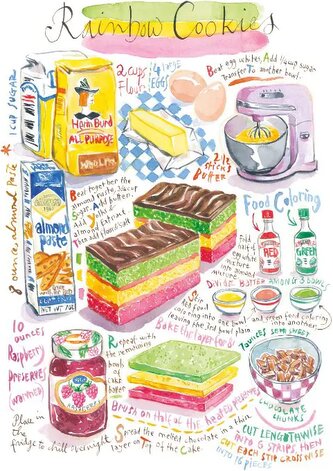 Rainbow Cookies
1 CUP SUGAR
2 CUPS
Flour
4 large
EGGS
Beat egg whites, Add ¼cup sugar
Transfer To another bowl.
ALL PURPOSE
2½
STICKS
BUTTER
8 ounces almond Paste
*
almond
paste
Beat together the
almond paste, ¾cup
Sugar, Add butter,
Add yolks
almond extract
Then add flour/salt
Food Coloring
RED
GREEN
Fold
half of
egg white
mixture
into almond
mixture
Divide BATTER AMONG 3 BOWLS
Stir red food
coloring into one bowl
and green food coloring
into another
leaving the 3rd bowl plain
Bake the layer for 8
10
OUNCES
Raspberry
PRESERVES
(warmed)
RASPBERRY
Repeat with
the remaining
bowls
of
cake
batter
7 OUNCES SEMI SWEET
CHOCOLATE
CHUNKS
Brush on Half of the heated preserves
Place in
the fridge to chill overnight
Spread the melted chocolate in a thin
layer on Top of the Cake.
CUT LENGTHWISE
INTO 6 STRIPS THEN
CUT EACH STIP CROSSWISE
INTO 16 PIECES